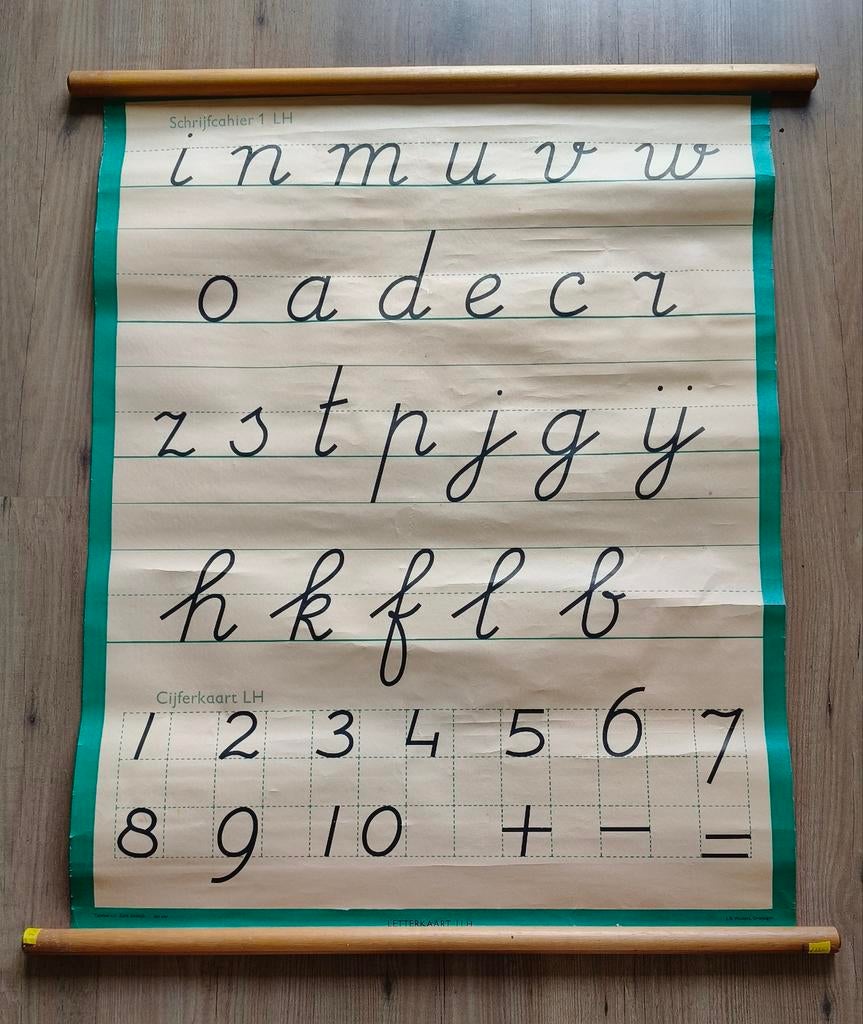 Schrijfcahier 1 LH
i n m u v w
o a d e c r
z s t p j g ij
h k f l b
Cijferkaart LH
1 2 3 4 5 6 7
8 9 10 + - =
LETTERKAART 1 LH